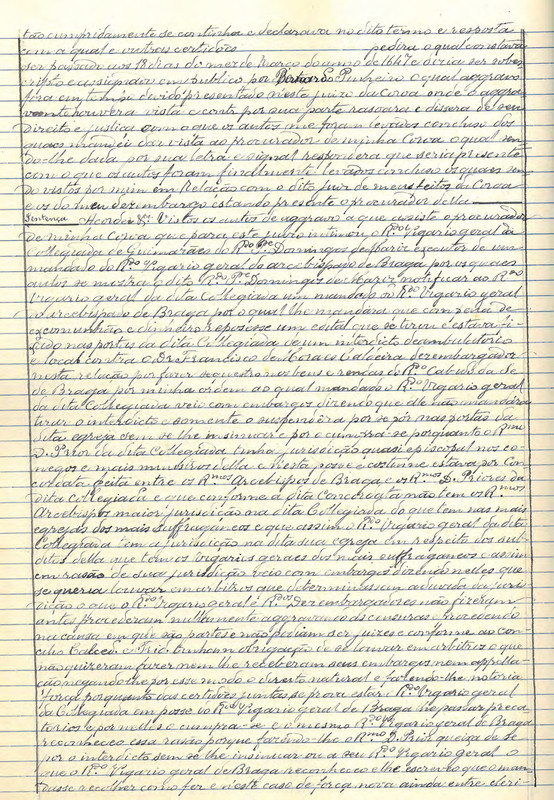 tão cumpridamente se continha e declarava no dito termo e resposta
com a qual e outros certidões pedira o qual constava
ser passado aos 18 dias do mez de Março do anno de 1647 e dizia ser sobes-
cripto e assignado em publico por Bernardo Pinheiro o qual aggravo
fora em tempo devido presentado neste juizo da Coroa onde o aggra-
vante houvera vista e contr por sua parte rasoara e dissera de seu
Direito e justiça com o que os autos me foram levados conclusos dos
quaes mandei dar vista ao procurador de minha Coroa o qual sen-
do-lhe dada por sua letra e signal respondera que seria presente
com o que os autos foram finalmente levados conclusos os quaes sen-
do vistos por mim em Relação com o dito juiz de meus feitos da Coroa
e os do meu dezembargo estando presente o procurador della
Sentença Acordei &ª. Vistos os autos de aggravo a que assiste o procurador
de minha Coroa que para este juizo intimou o Rdo Vigario geral da
Collegiada de Guimarães do Rdo Pe Domingos de Mariz escutor de um
mandado do Rdo Vigario geral do arcebispado de Braga por os quaes
autos se mostra o dito Rdo Pe Domingos de Mariz notificar ao Rdo
Vigario geral da dita Collegiada um mandado do Rdo Vigario geral
do arcebispado de Braga por o qual lhe mandara que com pena de
excomunhão e dinheiro reposesse um edital que se tirou e estava fi-
xado nas portas da dita Collegiada de um interdicto deambulatorio
e local contra o Dr. Francisco de Moraes Calveira dezembargador
nesta relação por fazer sequestro nos bens e rendas do Rdo Cabido da Sé
de Braga por minha ordem ao qual mandado o Rdo Vigario geral
da dita Collegiada veio com embargos dizendo que elle não mandara
tirar o interdicto e somente o suspendera por se pôr nas portas da
dita egreja sem se lhe insinuar e por o cumpra-se porquanto o Rmo
D. Prior da dita Collegiada tinha jurisdição quasi episcopal nos co-
negos e mais ministros della e nesta posse e costume estava por Con-
cordata feita entre os Rmos Arcebispos de Braga e os Rmos D. Priores da
dita Collegiada e que conforme á dita Concordata não tem os Rmos
Arcebispos maior jurisdição na dita Collegiada do que tem nas mais
egrejas dos mais suffraganeos e que assim o Rdo Vigario geral da dita
Collegiada tem a jurisdição na dita sua egreja em respeito dos sub-
ditos della que tem os Vigarios geraes dos mais suffraganeos e assim
em rasão de sua jurisdição veio com embargos dizendo nelles que
se queria louvar em arbitros que determinassem a duvida da juris-
dição o que o Rdo Vigario geral e Rdos Dezembargadores não fizeram
antes procederam nullamente aggravando as censuras procedendo
na causa em que são partes e não podiam ser juizes e conforme ao con-
cilio Calced. e Trid. tinham obrigação de se louvar em arbitros o que
não quizeram fazer nem lhe receberam seus embargos nem appella-
ção negando-lhe por esse modo o direito natural e fazendo-lhe notoria
força porquanto das certidões juntas se prova estar o Rdo Vigario geral
da Collegiada em posse do Rdo Vigario geral de Braga lhe passar preca-
torios e por nelles o cumpra-se e o mesmo Rdo Vigario geral de Braga
reconheceo essa rasão porque fazendo-lhe o Rmo D. Prior queixa de se
por o interdicto sem se lhe insinuar ou a seu Rdo Vigario geral o
que o Rdo Vigario geral de Braga reconheceo e lhe escreveo que o man-
dasse recolher como fez e neste caso de força nova ainda entre cleri-